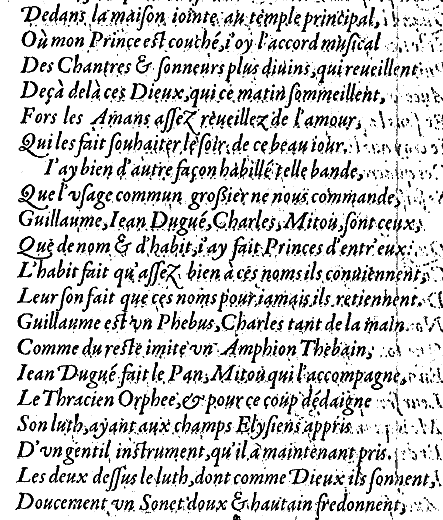 Dedans la maiſon iointe au temple principal,
Où mon Prince eſt couché, i'oy l'accord muſical
Des Chantres & ſonneurs plus diuins, qui reueillent
Deçà delà ces Dieux, qui ce matin ſommeillent,
Fors les Amans aſſez reueillez de l'amour,
Qui les fait ſouhaiter le ſoir, de ce beau iour.
I'ay bien d'autre façon habillé telle bande,
Que l'vſage commun groſsier ne nous commande,
Guillaume, Iean Dugué, Charles, Mitou, ſont ceux,
Que de nom & d'habit, i'ay fait Princes d'entr'eux:
L'habit fait qu'aſſez bien à ces noms ils conuiennent,
Leur ſon fait que ces noms pour iamais ils retiennent.
Guillaume eſt vn Phebus, Charles tant de la main
Comme du reſte imite vn Amphion Thebain,
Iean Dugué fait le Pan, Mitou qui l'accompagne,
Le Thracien Orphee, & pour ce coup dédaigne
Son luth, ayant aux champs Elyſiens appris
D'vn gentil inſtrument, qu'il à maintenant pris.
Les deux deſſus le luth, dont comme Dieux ils ſonnent,
Doucement vn Sonet doux & hautain fredonnent,